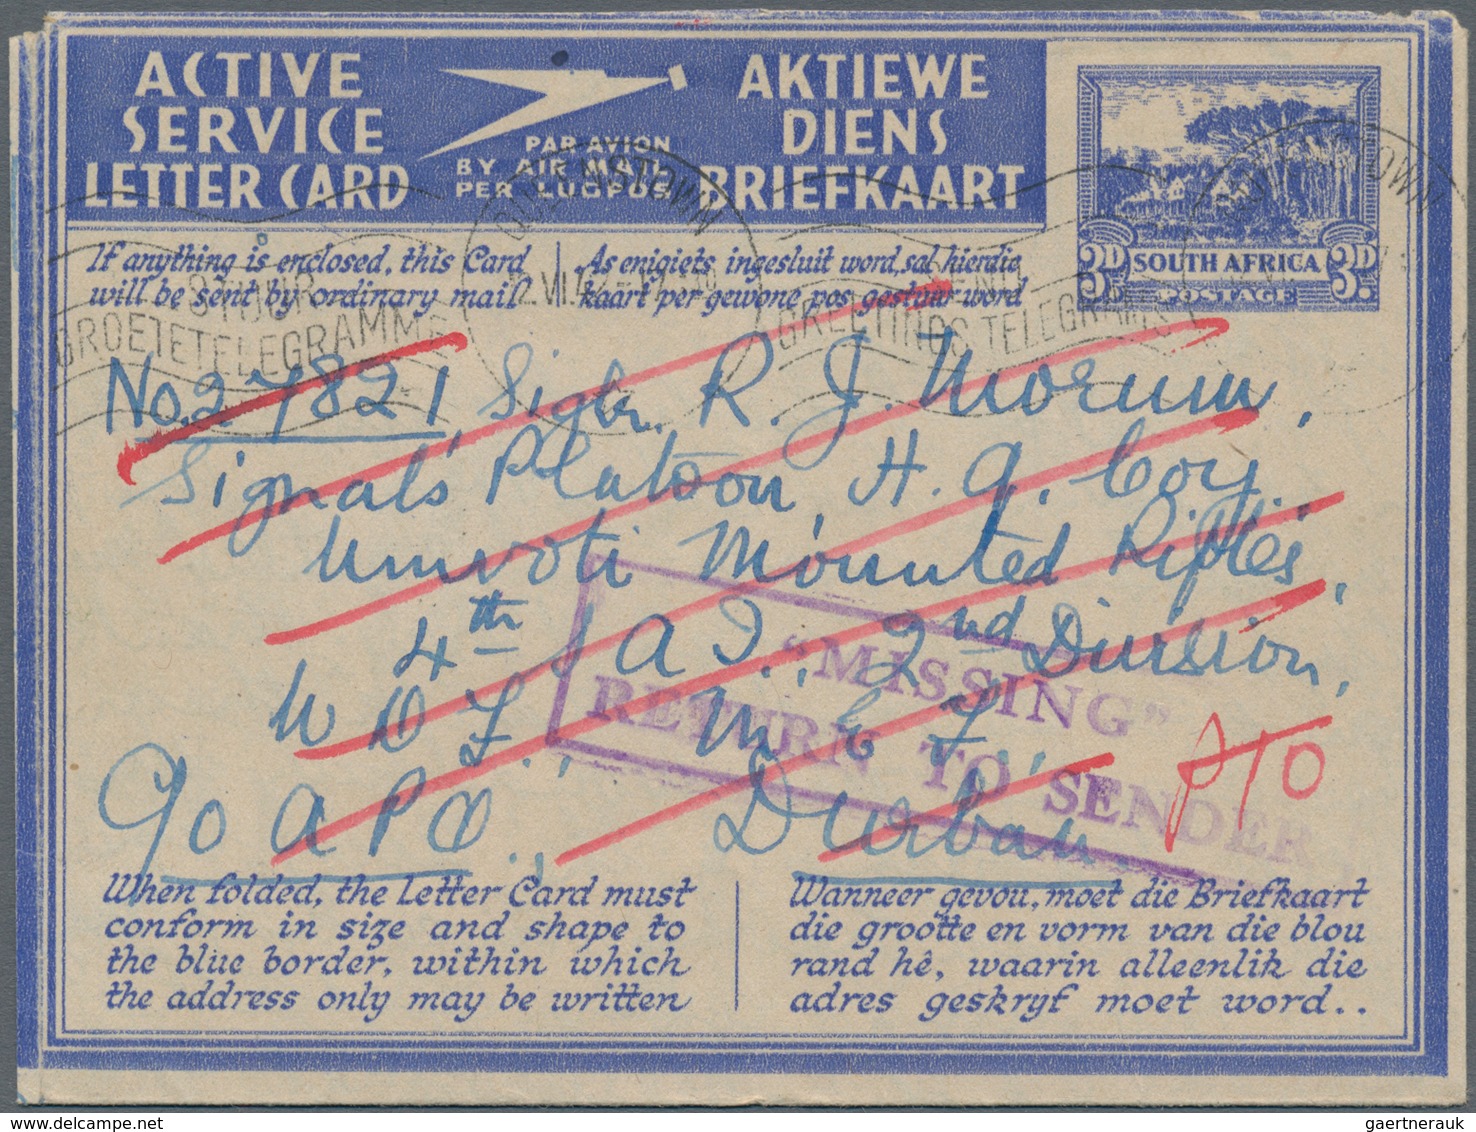 ACTIVE
SERVICE
LETTER CARD
PAR AVION
BY AIR MAIL
PER LUGPOS
AKTIEWE
DIENS
BRIEFKAART
SOUTH AFRICA
3D 3D
POSTAGE
QUEENSTOWN
QUEENSTOWN
STUUR
GROETETELEGRAMME
SEND
GREETINGS TELEGRAMS
If anything is enclosed, this Card
will be sent by ordinary mail.
As enigiets ingesluit word, sal hierdie
kaart per gewone pos gestuur word
No. 27821, Siglr. R. J. Morum,
Signals Platoon, H. Q. Coy.
Umvoti Mounted Rifles,
4th S A I., 2nd Division,
U D F., M. E. F.,
c/o A P O., Durban
"MISSING"
RETURN TO SENDER
P/O
When folded, the Letter Card must
conform in size and shape to
the blue border, within which
the address only may be written
Wanneer gevou, moet die Briefkaart
die grootte en vorm van die blou
rand hê, waarin alleenlik die
adres geskryf moet word..
gaertnerauk